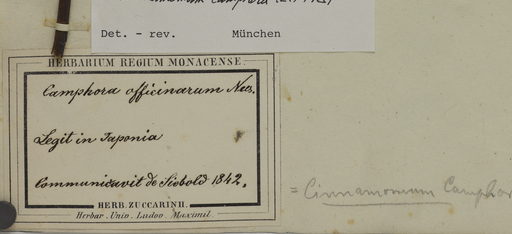 Camphora (L.)
Det. - rev. München
HERBARIUM REGIUM MONACENSE.
Camphora officinarum Nees.
Legit in Japonia
Communicavit de Siebold 1842.
HERB. ZUCCARINII.
Herbar. Univ. Ludov. Maximil.
= Cinnamomum Camphor